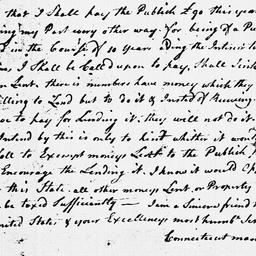 that I Shall pay the Publick £90 this year
ing my Part every other way. for being of a Pu
in the Course of 10 years ending the Interest
I Shall be Called upon to pay. Shall
Lent. there is numbers have money which they
illing to Lend but to do it & Insted of Receiving
to pay for Lending it. they will not do it
Intend by this is only to hint whither it wou
all to Exempt moneys Lent to the Publick
Encourage the Lending it. I know it would
this State. all other moneys Lent, or Property
be taxed Sufficiently — I am a Sincere friend
nited States & your Excellencys most humb Ser
Connecticut man